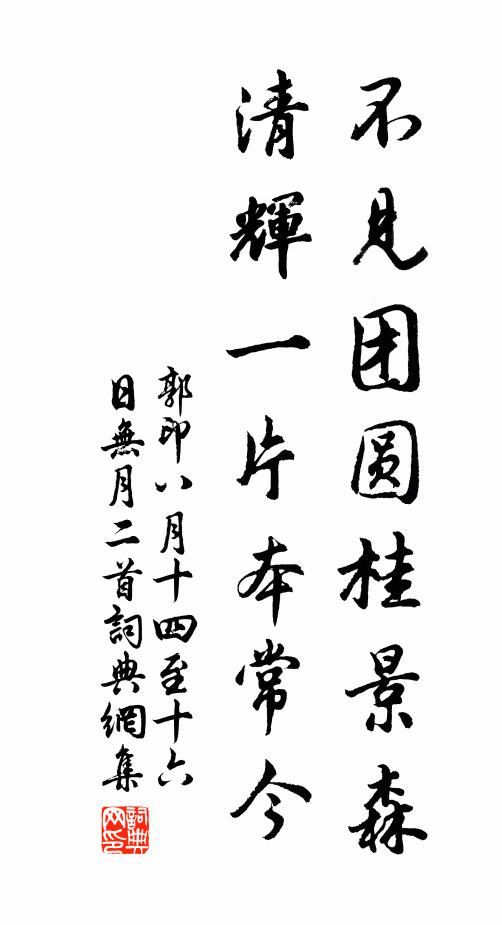 不见团圆桂景森
清輝一片本常今
郭印八月十四至十六
日無月二首詞典網集
詞典网印